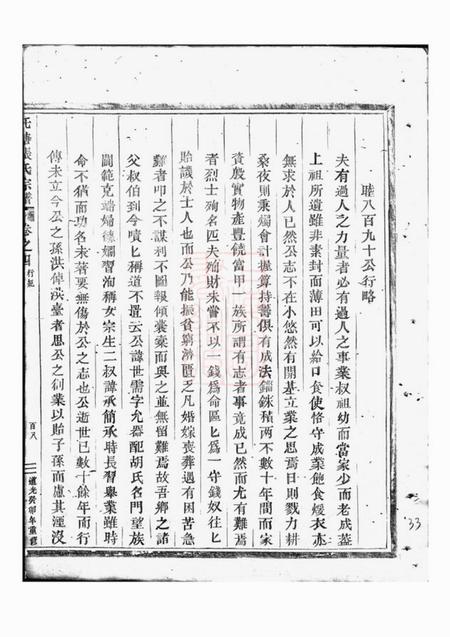 睦八百九十公行略
夫有過人之力量者必有過人之事業叔祖幼而當家少而老成蓋
上祖所遺雖非素封而薄田可以給口食使恪守成業飽食煖衣亦
無求於人已然公志不在小悠然有開基立業之思焉日則戮力耕
桑夜則秉燭會計握算持籌俱有成法錙銖積兩不數十年間而家
資殷實物產豐饒富甲一族所謂有志者事竟成已然而尤有難焉
者烈士殉名匹夫殉財未嘗不以一錢為命區匕為一守錢奴往匕
貽譏於士人也而公乃能振貧窮濟匱乏凡婚嫁喪葬遇有困苦急
難者叩之不謀利不圖報傾囊橐而與之並無留難焉故吾鄉之諸
父叔伯到今嘖匕稱道不置云公諱世需字允器配胡氏名門望族
閫範克端婦德嫻習洵稱女宗生二叔諱承簡承時長習舉業雖時
命不猶而功名未著要無傷於公之志也公逝世已數十餘年而行
傳未立今公之孫洪倬洪臺者思公之創業以貽子孫而慮其湮沒
氏宗譜
卷之四
行記
百八
道光癸卯年重修
33